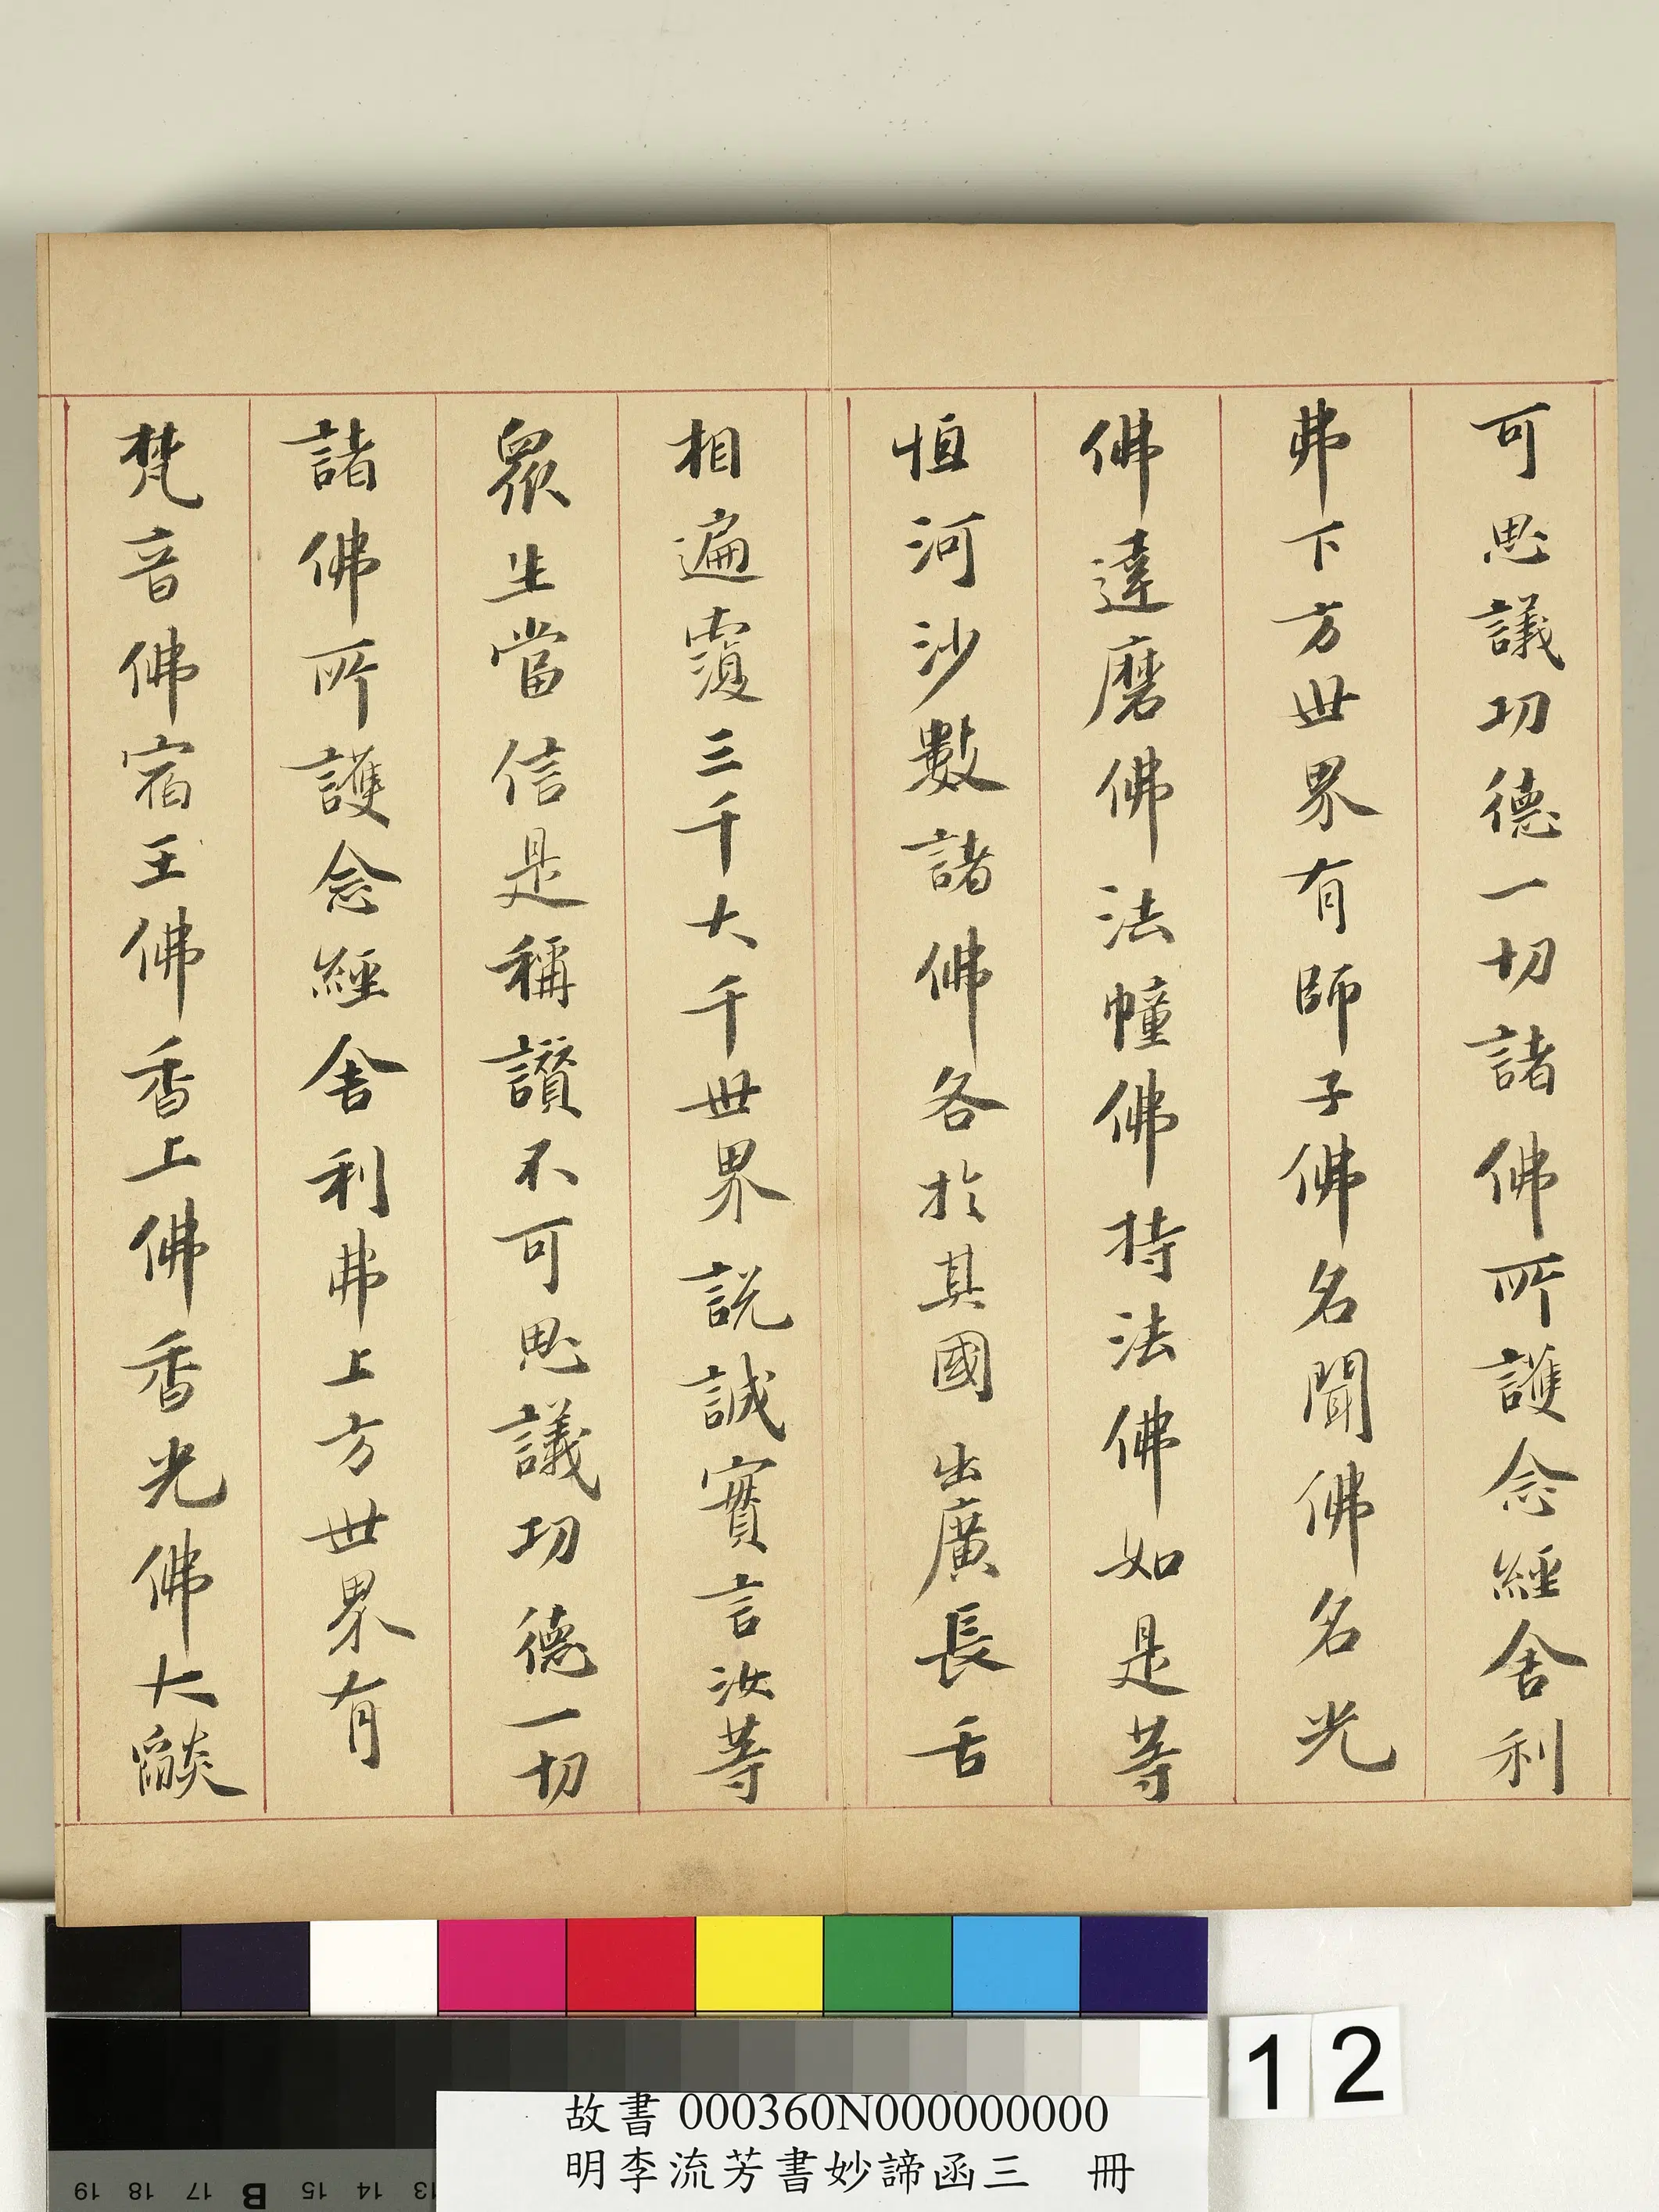 可思議功德一切諸佛所護念經舍利
弗下方世界有師子佛名聞佛名光
佛達磨佛法幢佛持法佛如是等
恒河沙數諸佛各於其國出廣長舌
相遍覆三千大千世界説誠實言汝等
眾生當信是稱讚不可思議功德一切
諸佛所護念經舍利弗上方世界有
梵音佛宿王佛香上佛香光佛大燄
12
故書 000360N000000000
明李流芳書妙諦函三 冊
19 18 17 B 15 14 13